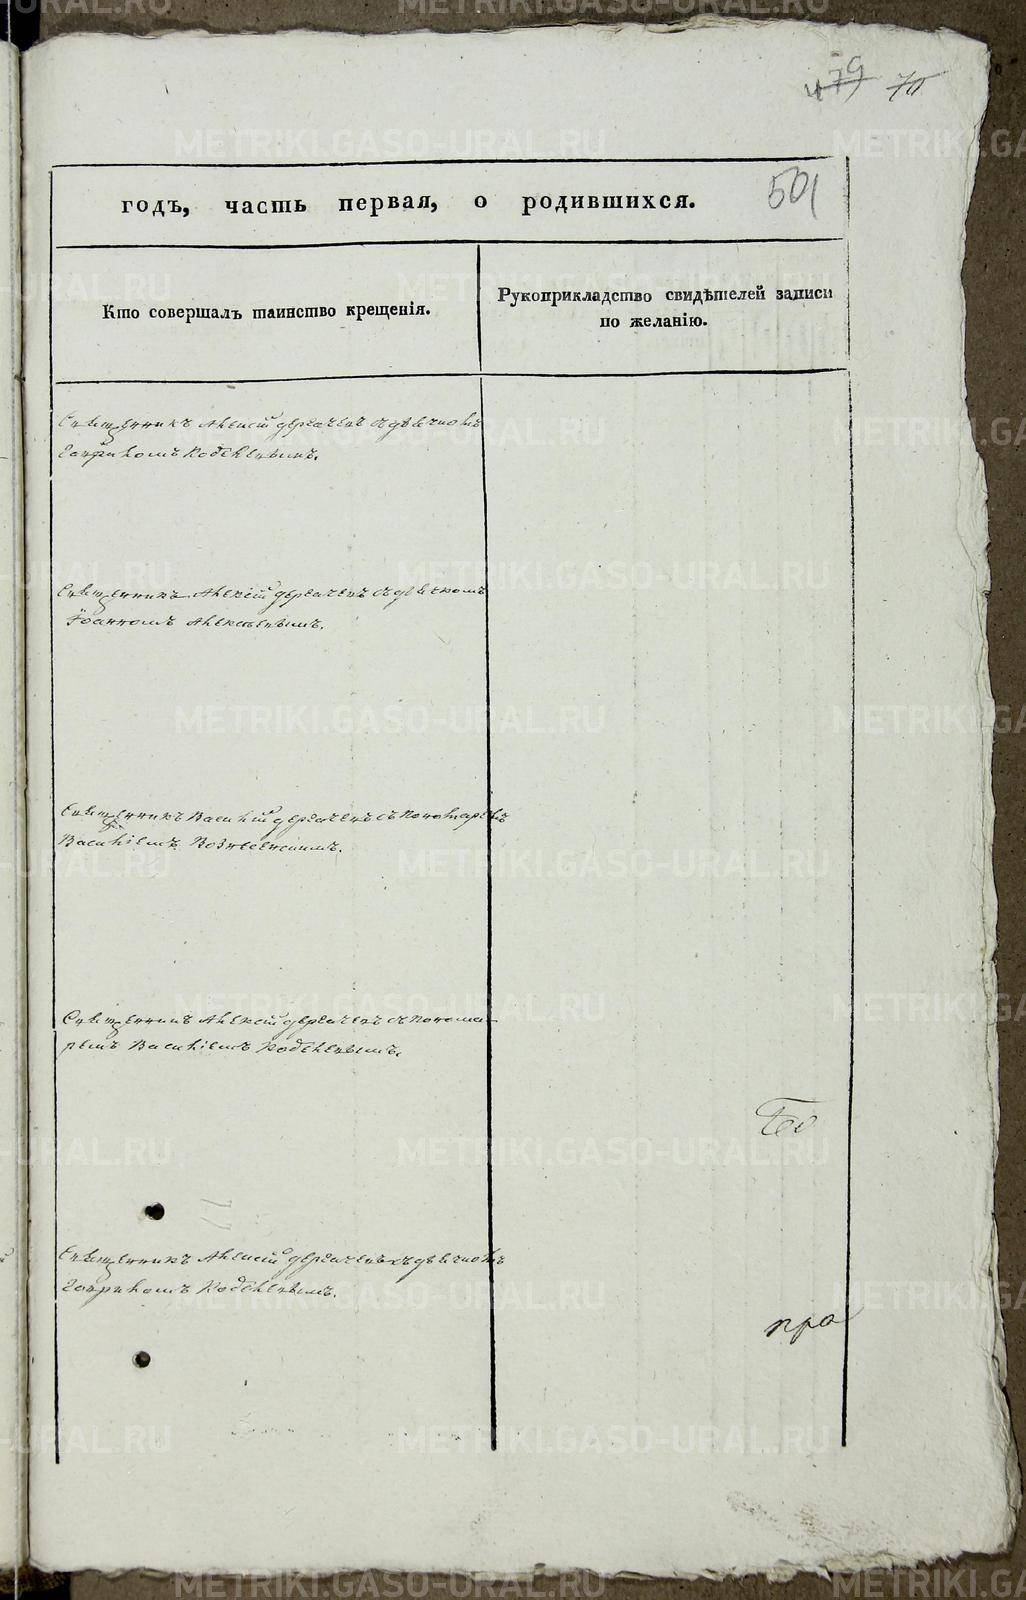 479 70
годъ, часть первая, о родившихся. 501
Кто совершалъ таинство крещенія.
Рукоприкладство свидѣтелей записи
по желанію.
Священникъ Алексій Дергачевъ съ дьячкомъ
Кобелевымъ.
Священникъ Алексій Дергачевъ съ дьячкомъ
Іоанномъ Алексѣевымъ.
Священникъ Василій Дергачевъ съ Пономаремъ
Василіемъ Вознесенскимъ.
Священникъ Алексій Дергачевъ съ Понома-
ремъ Василіемъ Кобелевымъ.
Священникъ Алексій Дергачевъ съ дьячкомъ
Кобелевымъ.
пра
METRIKI.GASO-URAL.RU